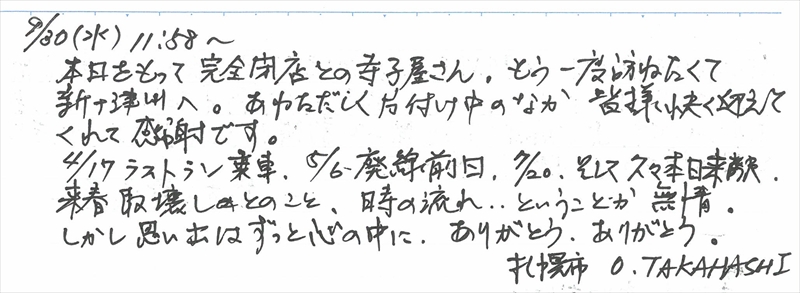 9/30(水) 11:58〜
本日をもって完全閉店との寺子屋さん。もう一度訪ねたくて
新十津川へ。あわただしく片付け中のなか 皆様快く迎えて
くれて感謝です。
4/17 ラストラン乗車、5/6 廃線前日、7/20、そして久々本日来訪、
来春取壊しとのこと、時の流れ‥ということか 無情。
しかし思い出はずっと心の中に、ありがとう、ありがとう。
札幌市 O.TAKAHASHI